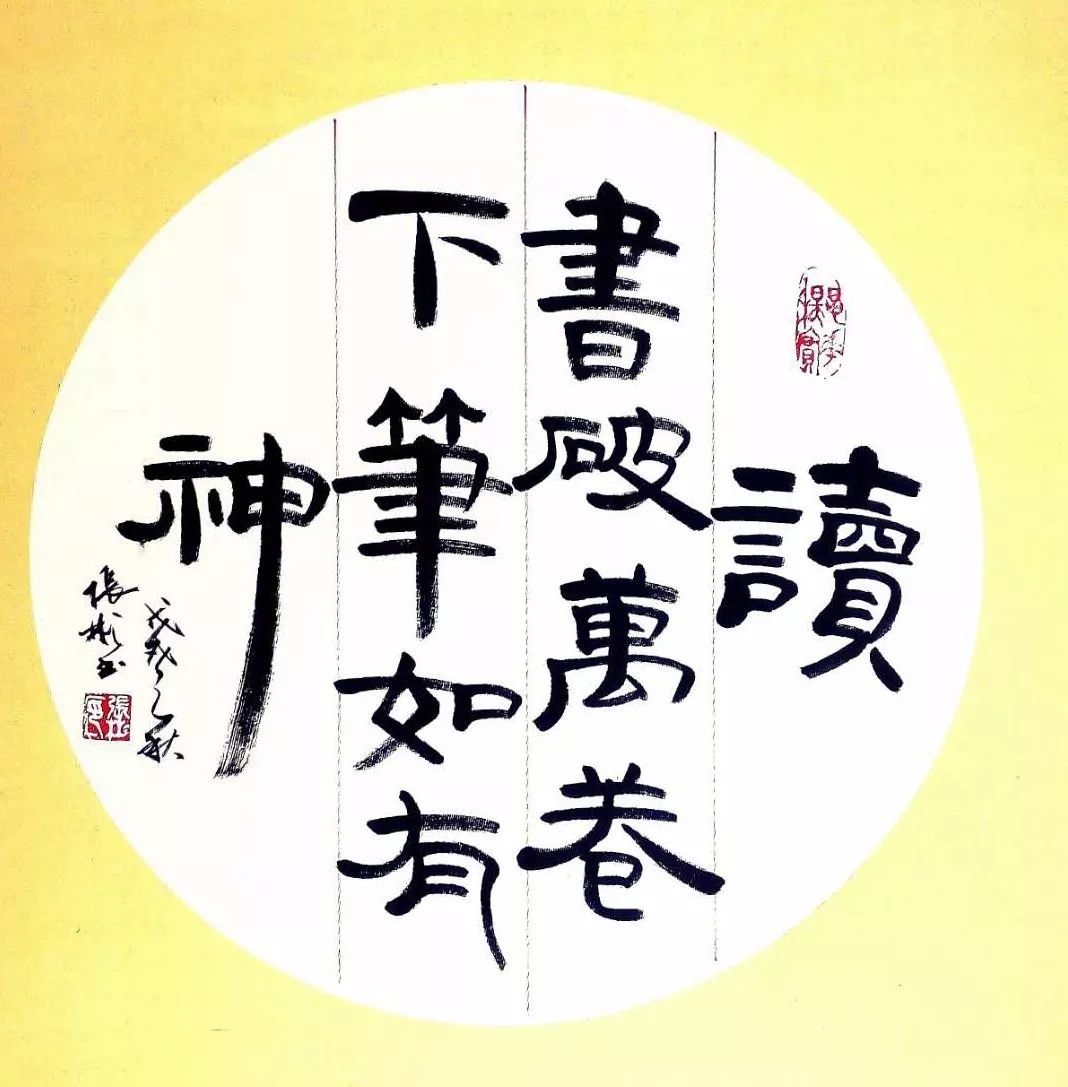 讀
書破萬卷
下筆如有
神
戊戌之秋
張彬书